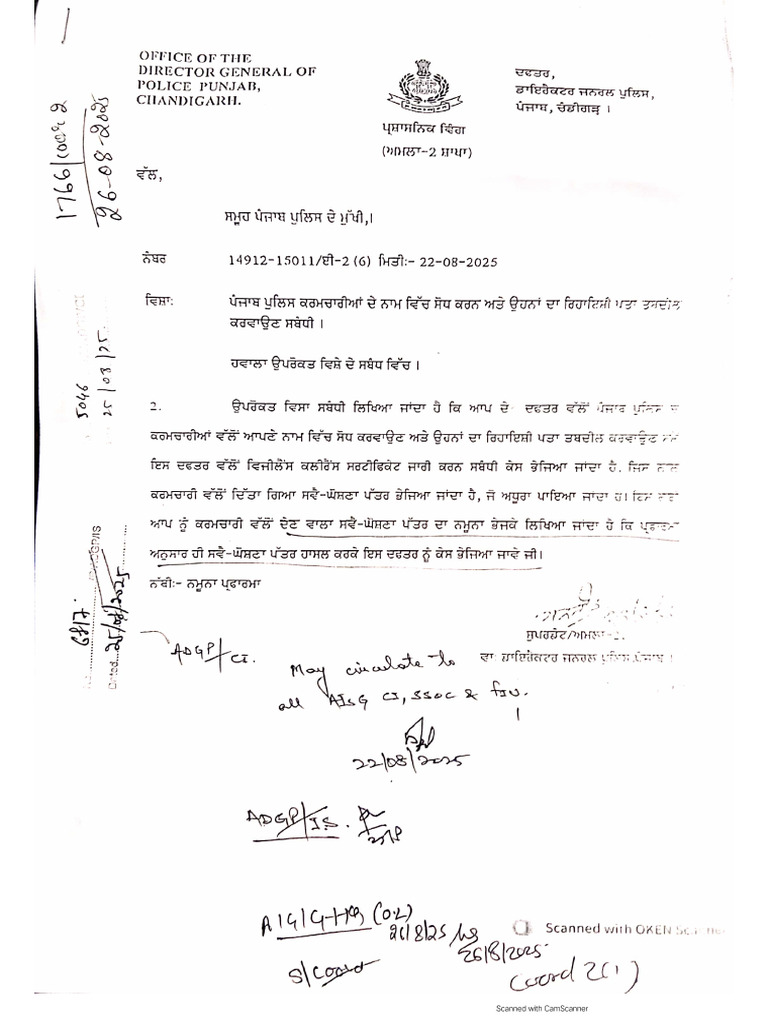 OFFICE OF THE
DIRECTOR GENERAL OF
POLICE PUNJAB,
CHANDIGARH.
ਦਫਤਰ,
ਡਾਇਰੈਕਟਰ ਜਨਰਲ ਪੁਲਿਸ,
ਪੰਜਾਬ, ਚੰਡੀਗੜ੍ਹ ।
ਪ੍ਰਸ਼ਾਸਨਿਕ ਵਿੰਗ
(ਅਮਲਾ-2 ਸ਼ਾਖਾ)
26-08-2025
ਵੱਲ,
ਸਮੂਹ ਪੰਜਾਬ ਪੁਲਿਸ ਦੇ ਮੁੱਖੀ,।
ਨੰਬਰ 14912-15011/ਈ-2 (6) ਮਿਤੀ:- 22-08-2025
ਵਿਸ਼ਾ: ਪੰਜਾਬ ਪੁਲਿਸ ਕਰਮਚਾਰੀਆਂ ਦੇ ਨਾਮ ਵਿੱਚ ਸੋਧ ਕਰਨ ਅਤੇ ਉਹਨਾਂ ਦਾ ਰਿਹਾਇਸ਼ੀ ਪਤਾ ਤਬਦੀਲ
ਕਰਵਾਉਣ ਸਬੰਧੀ ।
ਹਵਾਲਾ ਉਪਰੋਕਤ ਵਿਸ਼ੇ ਦੇ ਸਬੰਧ ਵਿੱਚ ।
5046
25/08/25
2. ਉਪਰੋਕਤ ਵਿਸਾ ਸਬੰਧੀ ਲਿਖਿਆ ਜਾਂਦਾ ਹੈ ਕਿ ਆਪ ਦੇ ਦਫਤਰ ਵੱਲੋਂ ਪੰਜਾਬ ਪੁਲਿਸ ਦੇ
ਕਰਮਚਾਰੀਆਂ ਵੱਲੋਂ ਆਪਣੇ ਨਾਮ ਵਿੱਚ ਸੋਧ ਕਰਵਾਉਣ ਅਤੇ ਉਹਨਾਂ ਦਾ ਰਿਹਾਇਸ਼ੀ ਪਤਾ ਤਬਦੀਲ ਕਰਵਾਉਣ
ਇਸ ਦਫਤਰ ਵੱਲੋਂ ਵਿਜੀਲੈਂਸ ਕਲੀਰੈਂਸ ਸਰਟੀਫਿਕੇਟ ਜਾਰੀ ਕਰਨ ਸਬੰਧੀ ਕੇਸ ਭੇਜਿਆ ਜਾਂਦਾ ਹੈ. ਜਿਸ ਨਾਲ
ਕਰਮਚਾਰੀ ਵੱਲੋਂ ਦਿੱਤਾ ਗਿਆ ਸਵੈ-ਘੋਸ਼ਣਾ ਪੱਤਰ ਭੇਜਿਆ ਜਾਂਦਾ ਹੈ, ਜੋ ਅਧੂਰਾ ਪਾਇਆ ਜਾਂਦਾ ਹ।
ਆਪ ਨੂੰ ਕਰਮਚਾਰੀ ਵੱਲੋਂ ਦੇਣ ਵਾਲਾ ਸਵੈ-ਘੋਸ਼ਣਾ ਪੱਤਰ ਦਾ ਨਮੂਨਾ ਭੇਜਕੇ ਲਿਖਿਆ ਜਾਂਦਾ ਹੈ ਕਿ ਪ੍ਰਫਾਰਮਾ
ਅਨੁਸਾਰ ਹੀ ਸਵੈ-ਘੋਸ਼ਣਾ ਪੱਤਰ ਹਾਸਲ ਕਰਕੇ ਇਸ ਦਫਤਰ ਨੂੰ ਕੇਸ ਭੇਜਿਆ ਜਾਵੇ ਜੀ।
ਨੱਥੀ:- ਨਮੂਨਾ ਪ੍ਰਫਾਰਮਾ
ਸੁਪਰਡੰਟ/ਅਮਲਾ-2.
ਵਾ: ਡਾਇਰੈਕਟਰ ਜਨਰਲ ਪੁਲਿਸ,ਪੰਜਾਬ ।
ADGP/CI.
May circulate to
all AIsG CI, SSOC & FIU.
22/08/2025
ADGP/IS.
AIG/G-HQ (O.L)
26/8/25
26/8/2025
S/Coord
Coord 2(1)
Scanned with OKEN Scanner
Scanned with CamScanner